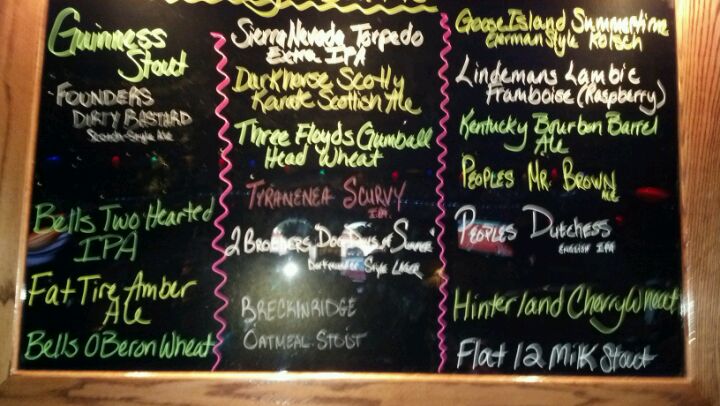 Guinness
Stout
FOUNDERS
DIRTY BASTARD
Scotch-Style Ale
Bells Two Hearted
IPA
Fat Tire Amber
Ale
Bells OBeron Wheat
Sierra Nevada Torpedo
Extra IPA
Darkhorse Scotty
Karate Scottish Ale
Three Floyds Gumball
Head Wheat
TYRANENEA SCURVY
IPA
2 BROTHERS DOG DAYS of SUMMER
Dortmunder Style LAGER
BRECKINRIDGE
OATMEAL STOUT
Goose Island Summertime
German Style Kolsch
Lindemans Lambic
Framboise (Raspberry)
Kentucky Bourbon Barrel
Ale
PEOPLES MR. BROWN
PEOPLES DUTCHESS
ENGLISH IPA
Hinterland Cherry Wheat
Flat 12 Milk Stout